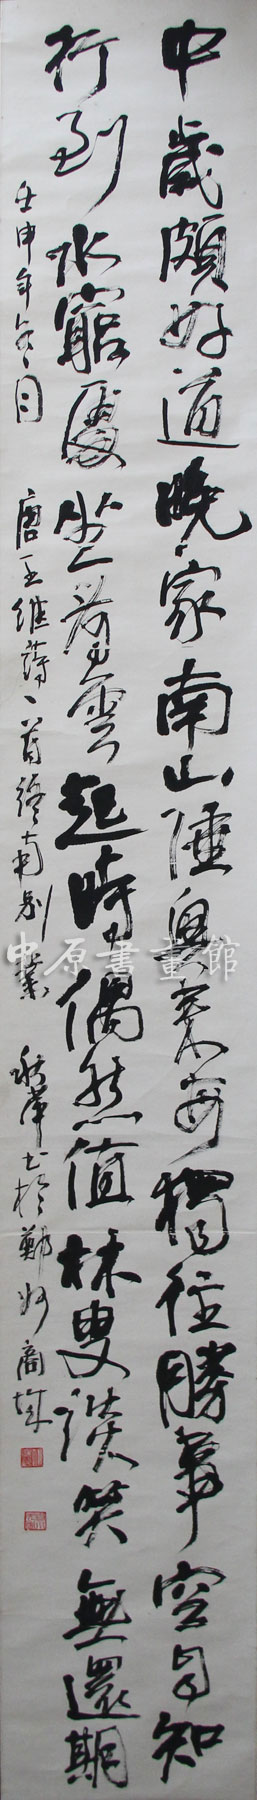 中歲頗好道晚家南山陲興來每獨往勝事空自知
行到水窮處坐看雲起時偶然值林叟談笑無還期
壬申年冬月 唐王維詩一首終南别業 秋萍书於鄭州商城
中原書畫館